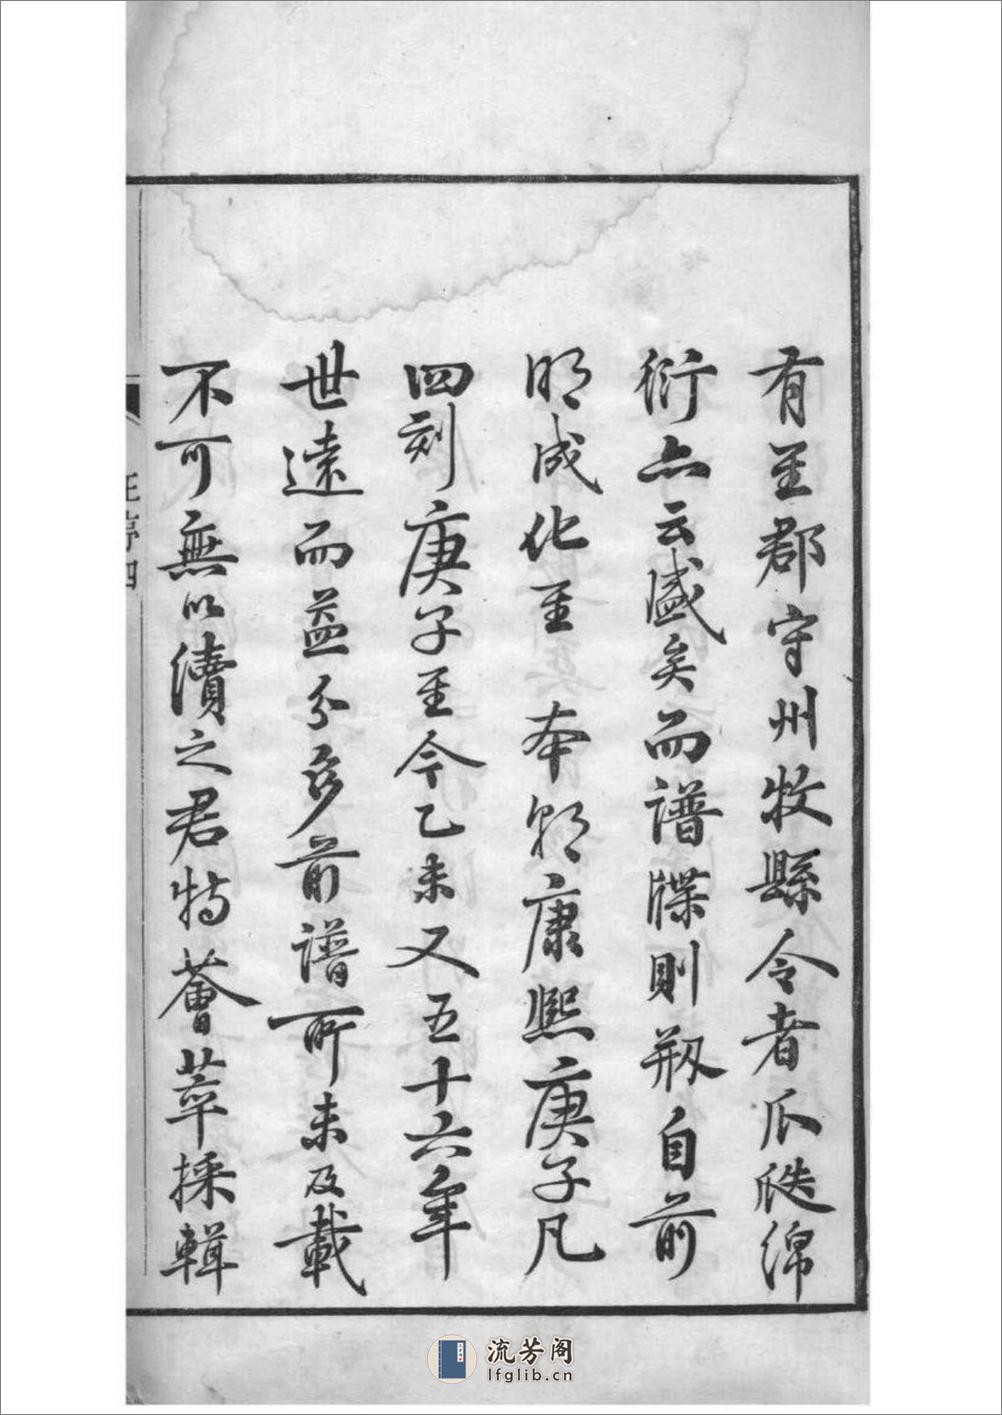 有至郡守州牧縣令者瓜瓞綿
衍亦云盛矣而譜牒則刱自前
明成化至本朝康熙庚子凡
四刻庚子至今乙未又五十六年
世遠而益分多前譜所未及載
不可無以續之君特薈萃採輯
汪序四
流芳阁
lfglib.cn